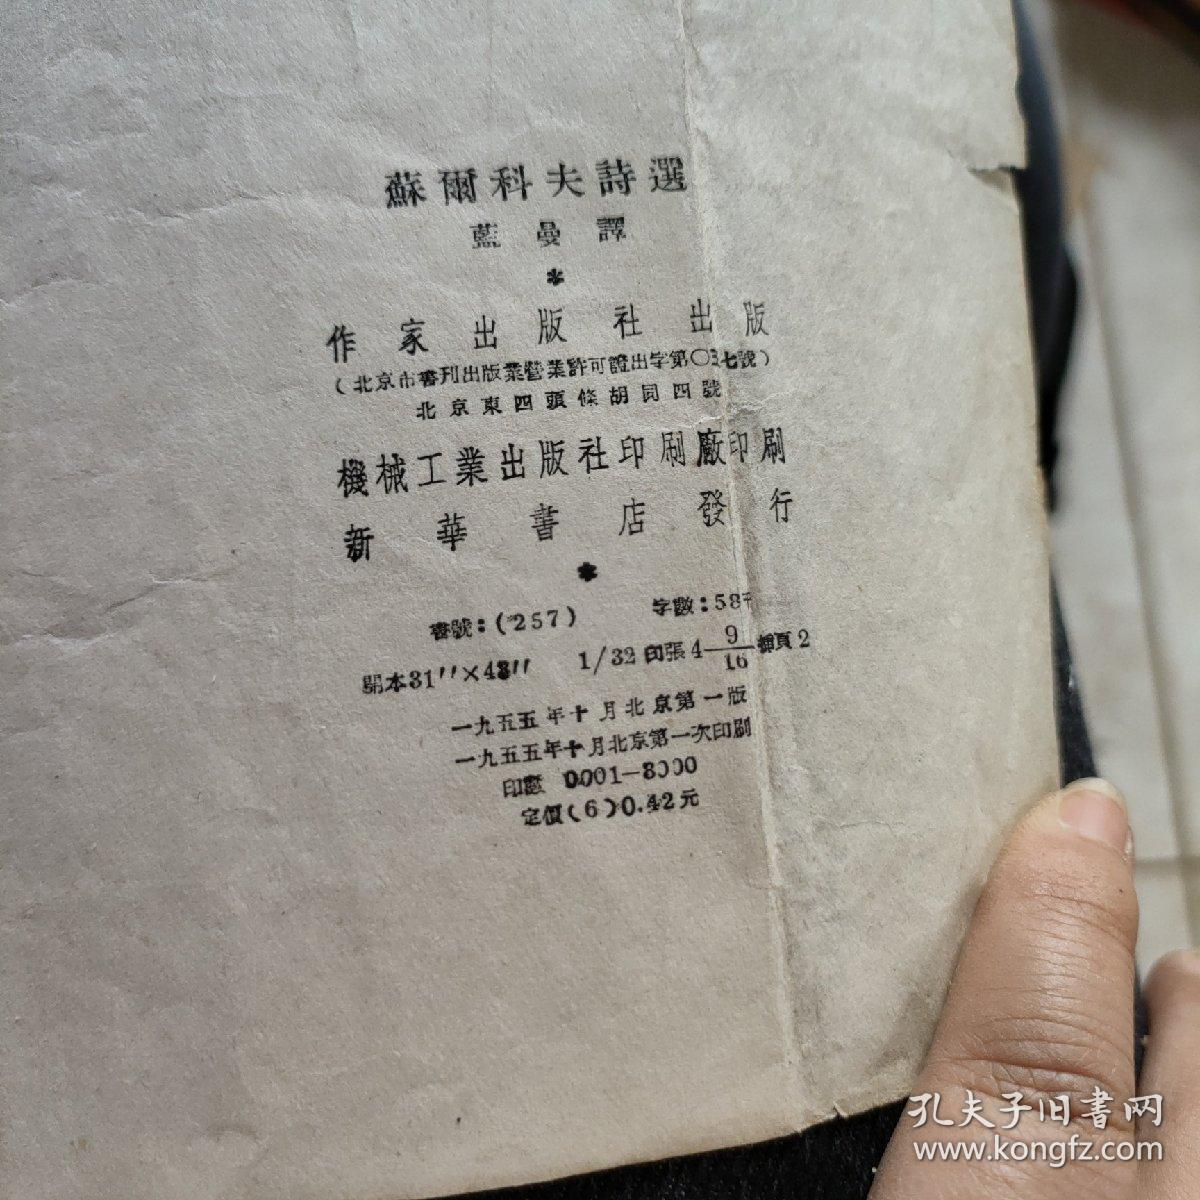 蘇爾科夫詩選
藍曼譯
*
作家出版社出版
(北京市書刊出版業營業許可證出字第〇五七號)
北京東四頭條胡同四號
機械工業出版社印刷廠印刷
新華書店發行
*
書號:(257) 字數:58千
開本31"×43" 1/32 印張4 9/16 插頁2
一九五五年十月北京第一版
一九五五年十月北京第一次印刷
印數 0001—8000
定價(6)0.42元
孔夫子旧書网
www.kongfz.com